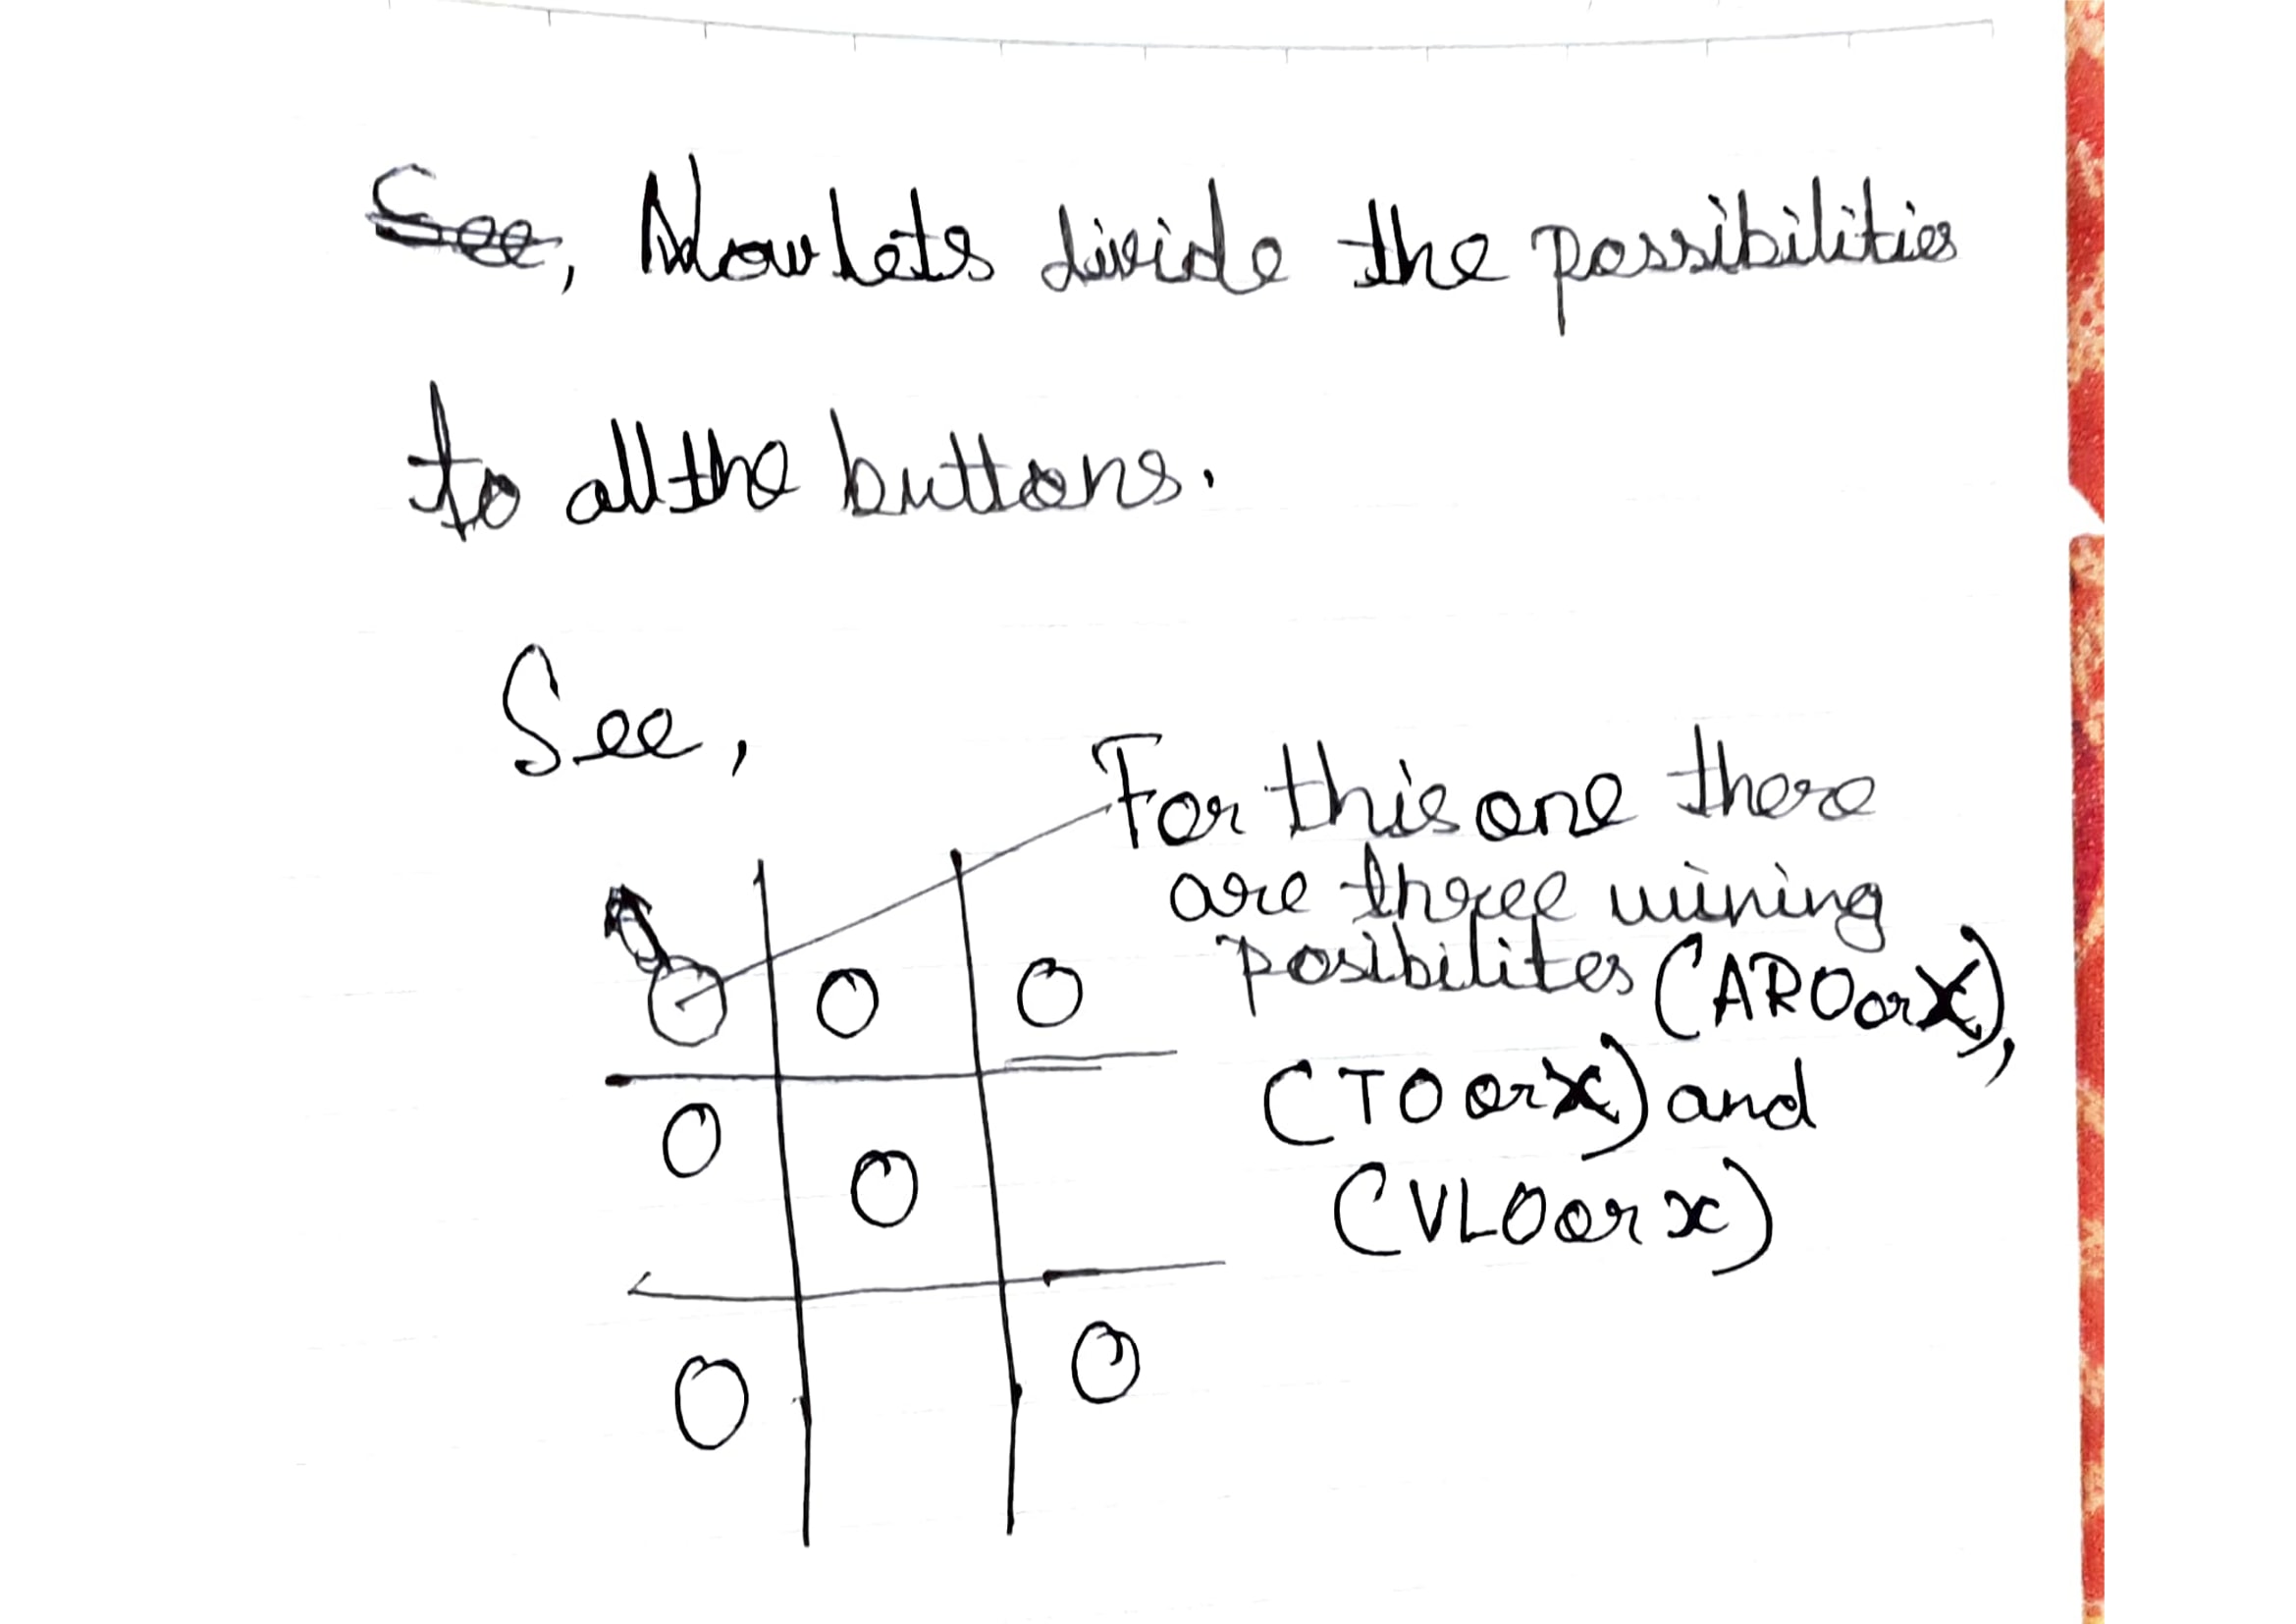 See, Now lets divide the possibilities
to all the buttons.
See,
For this one there
are three wining
posibilites (ARO or X),
(TO or X) and
(VLO or x)
O O O
O O
O O